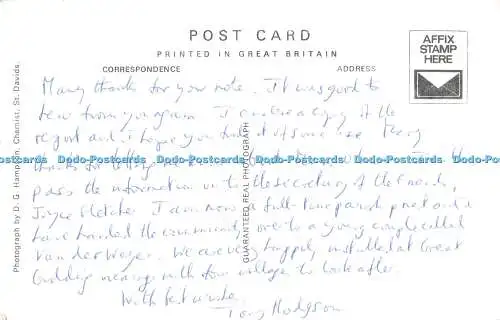 POST CARD
PRINTED IN GREAT BRITAIN
AFFIX
STAMP
HERE
CORRESPONDENCE
ADDRESS
Many thanks for your note. It was good to
hear from you again. I enclose a copy of the
report and I hope you find it of some use. Many
thanks for letting
Dodo-Postcards Dodo-Postcards Dodo-Postcards Dodo-Postcards Dodo-Postcards
pass the information on to the secretary of the
Joyce Fletcher. I am now a full-time parish priest and
have handed the community over to a young couple called
Van der Weyer. We are very happily installed at Great
Gidding vicarage with four villages to look after.
With best wishes,
Tony Hodgson
Photograph by D. G. Hampson, Chemist, St. Davids
GUARANTEED REAL PHOTOGRAPH